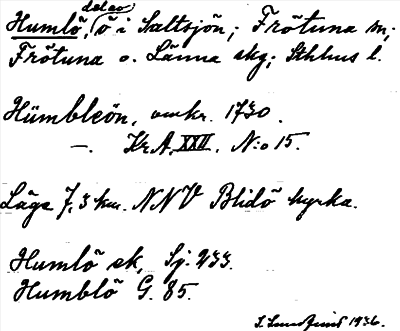 Humlö, delar, ö i Saltsjön; Frötuna sn;
Frötuna o. Länna skg; Sthlms l.
Hümbleön, omkr. 1730.
—. Kr.A. XXII. N:o 15.
Läge 7,3 km. NNV Blidö kyrka.
Humlö sk, Sj. 233.
Humblö G. 85.
1936.